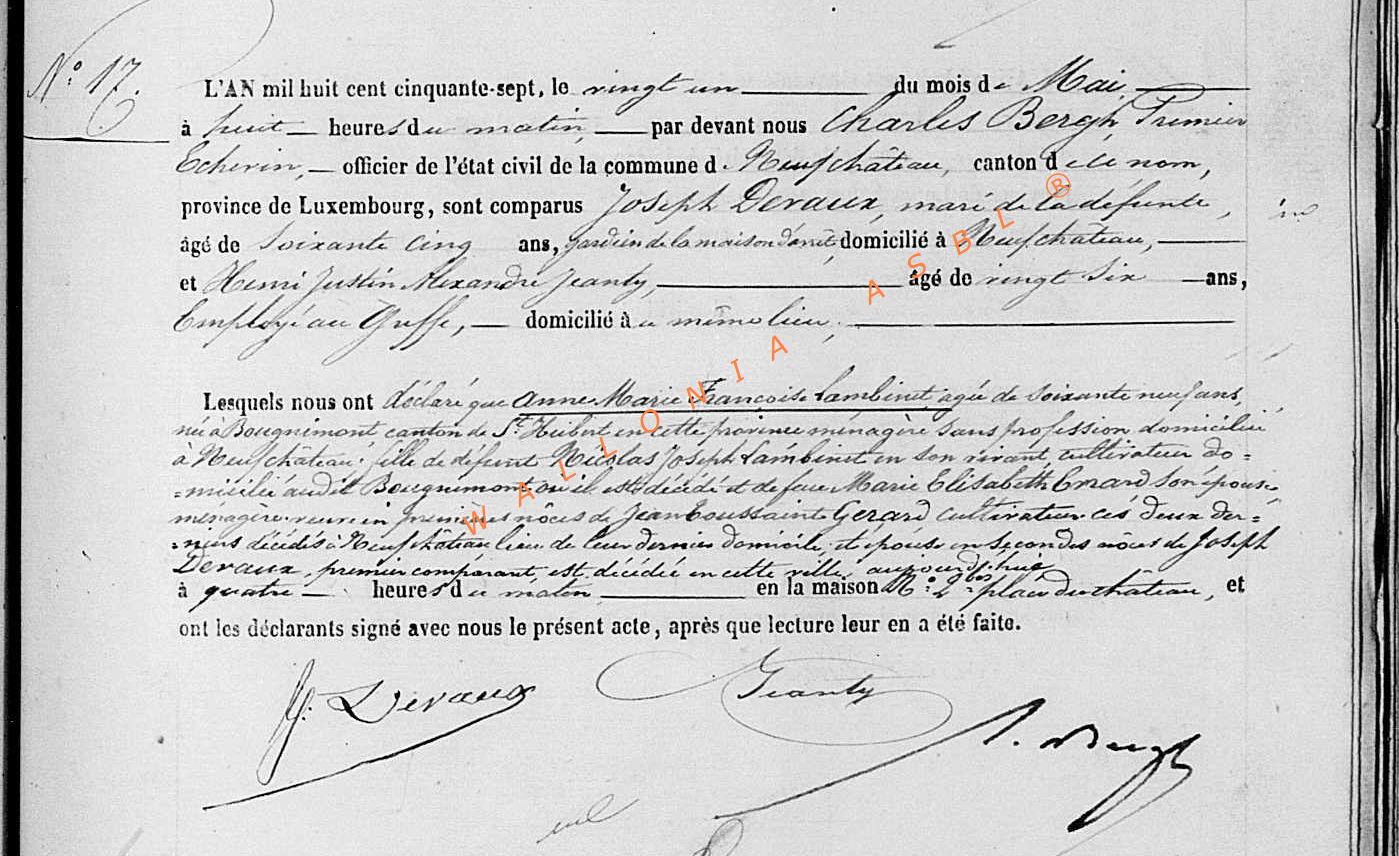 N° 17.
L'AN mil huit cent cinquante-sept, le vingt un du mois de Mai,
à huit heures du matin, par devant nous Charles Bergh, Premier
Echevin, officier de l'état civil de la commune d Neufchâteau, canton d de ce nom,
province de Luxembourg, sont comparus Joseph Devaux, mari de la défunte,
âgé de Soixante cinq ans, gardien de la maison d'arrêt, domicilié à Neufchateau,
et Henri Justin Alexandre Jeanty, âgé de vingt six ans,
Employé au Greffe, domicilié à u même lieu,
Lesquels nous ont déclaré que Anne Marie Françoise Lambinet agée de soixante neuf ans,
née à Bougnimont canton de St Hubert en cette province ménagère sans profession domiciliée
à Neufchâteau, fille de défunt Nicolas Joseph Lambinet en son vivant cultivateur do=
=misilié audit Bougnimont où il est décédé et de feue Marie Elisabeth Enard son épouse,
ménagère, veuve en premières nôces de Jean Toussaint Gerard cultivateur, ces deux der=
=niers décédés à Neufchâteau lieu de leur dernier domicile, et épouse en secondes nôces de Joseph
Devaux, premier comparant, est décédée en cette ville, aujourd'hui
à quatre heures du matin, en la maison N° 2bis place du château, et
ont les déclarants signé avec nous le présent acte, après que lecture leur en a été faite.
J. Devaux
Jeanty
C. Bergh
WALLONIA ASBL ®